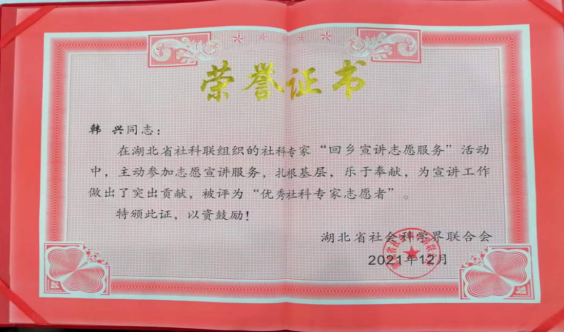 荣誉证书
韩 兴同志：
在湖北省社科联组织的社科专家“回乡宣讲志愿服务”活动
中，主动参加志愿宣讲服务，扎根基层，乐于奉献，为宣讲工作
做出了突出贡献，被评为“优秀社科专家志愿者”。
特颁此证，以资鼓励！
湖北省社会科学界联合会
2021年12月